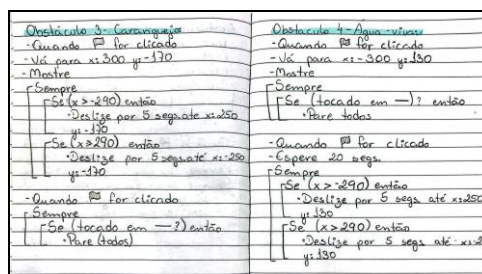 Obstáculo 3 - Caranguejos
- Quando for clicado
- Vá para x: 300 y: -170
- Mostre
Sempre
Se (x > -290) então
• Deslize por 5 segs. até x: 250
y: -170
Se (x > 290) então
• Deslize por 5 segs. até x: -250
y: -170
- Quando for clicado
Sempre
Se (tocado em — ?) então
• Pare (todos)
Obstáculo 4 - Água-vivas
- Quando for clicado
- Vá para x: -300 y: 130
- Mostre
Sempre
Se (tocado em —)? então
• Pare todos
- Quando for clicado
- Espere 20 segs.
Sempre
Se (x > -290) então
• Deslize por 5 segs até x: 250
y: 130
Se (x > 290) então
• Deslize por 5 segs até x: -2
y: 130